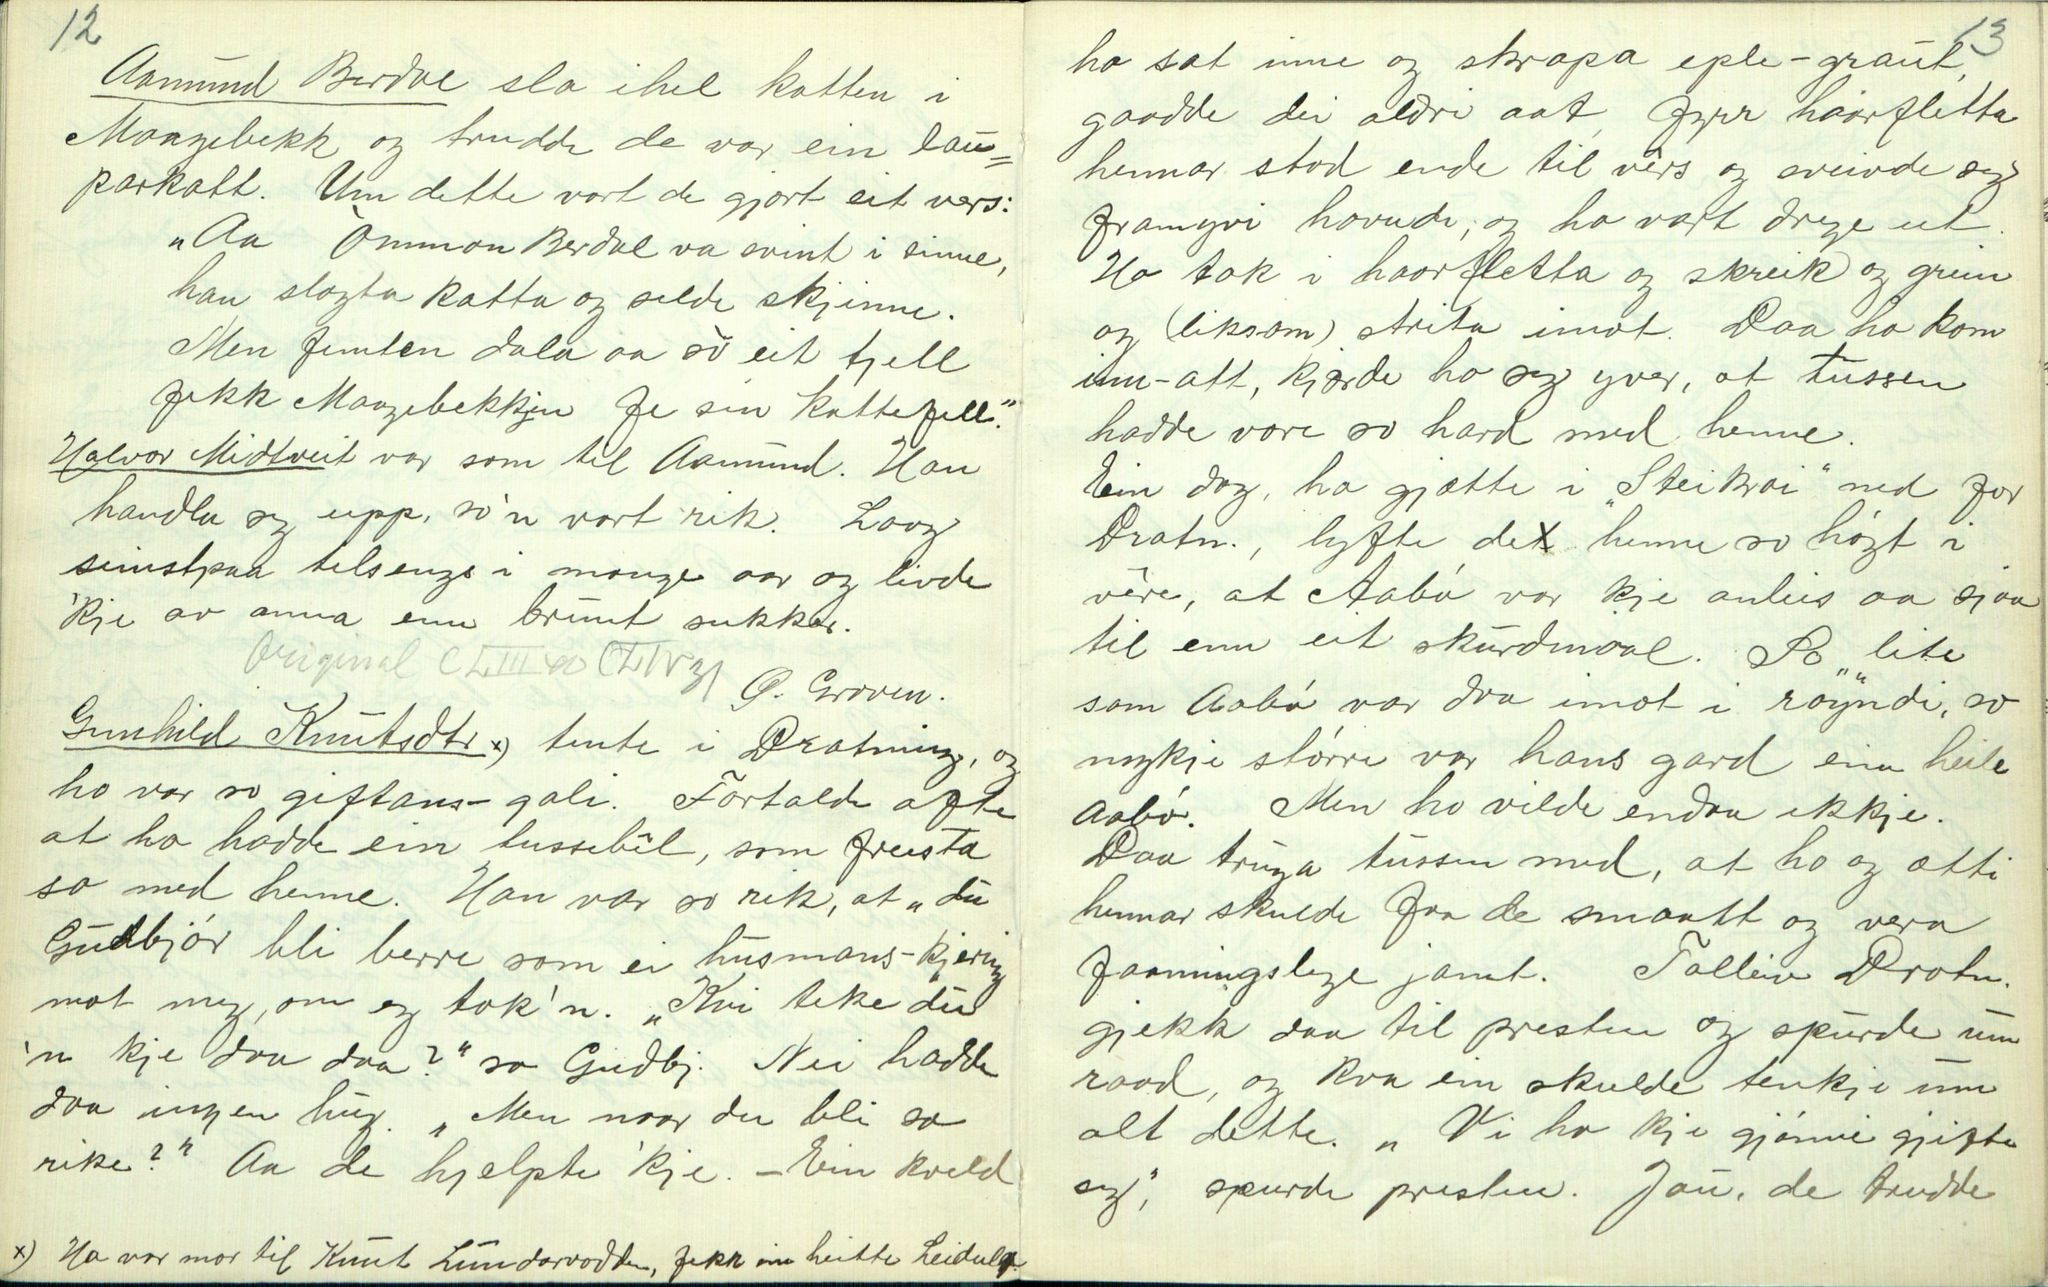 12
Aamund Berdal slo ihel katten i
Maagebekk og trudde de var ein lau=
parkatt. Um dette vart de gjort eit vers:
"Aa Òmmon Berdal va svint i sinne,
han slagta katta og selde skjinne.
Men femten dala aa sò eit tjell
fekk Maagebekkjen fe sin kattefell."
Halvor Midtveit var som til Aamund. Han
handla seg upp, so'n vart rik. Laag
sinstpaa tilsengs i mange aar og livde
'kje av anna enn brunt sukker.
Original CLIII so CLIV
Ø. Groven.
Gunhild Knutsdtr x) tente i Dratning, og
ho var so giftans-gali. Fortalde ofte
at ho hadde ein tussebêl, som freista
so med henne. Han var so rik, at "du
Gudbjór bli berre som ei husmans-kjering
mot meg, om eg tok'n. "Kvi teke du
'n kje daa daa?" sa Gudbj. Nei hadde
daa ingen hug. "Men naar du bli so
rike?" Aa de hjelpte 'kje. – Ein kveld
x) Ho var mor til Knut Lundarvodden, fekk ein heitte Leidulf.
13
ho sat inne og skrapa eple-graut,
gaadde dei aldri aat, fyrr haarfletta
hennar stod ende til vêrs og sveivde seg
framyvi hovude, og ho vart drege ut.
Ho tok i haarfletta og skreik og grein
og (liksom) strita imot. Daa ho kom
inn-att, kjærde ho seg yver, at tussen
hadde vore so hard med henne.
Ein dag, ho gjætte i "Steikrai" ned for
Dratn., lyfte de henne so høgt i
vêre, at Aabó var kje anleis aa sjaa
til enn eit skurdmaal. So lite
som Aabó var daa imot i røyndi, so
mykje stórre var hans gard enn heile
Aabó. Men ho vilde endaa ikkje.
Daa truga tussen med, at ho og ætti
hennar skulde faa de smaatt og vera
faaningslege jamt. Talleiv Dratn.
gjekk daa til presten og spurde um
raad, og kva ein skulde tenkje um
alt dette. "Vi ho kje gjónne gjifte
seg", spurde presten. Jau, de trudde